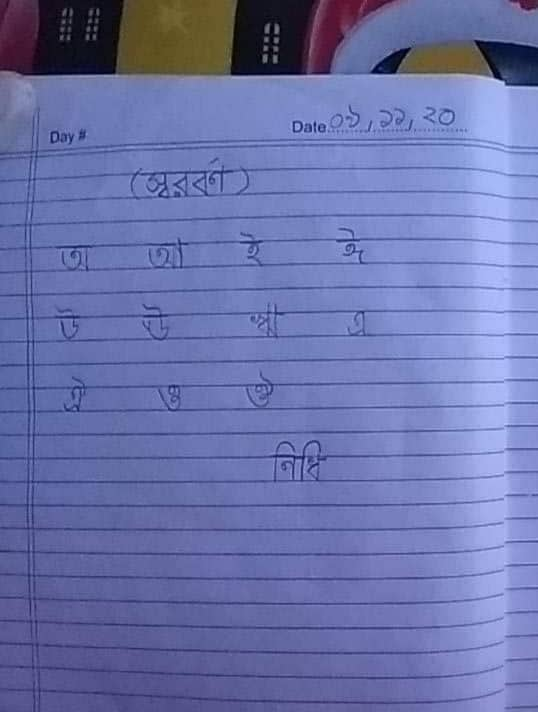 Day #
Date ০৯, ১১, ২০
(স্বরবর্ণ)
অ আ ই ঈ
উ ঊ ঋ এ
ঐ ও ঔ
নিধি